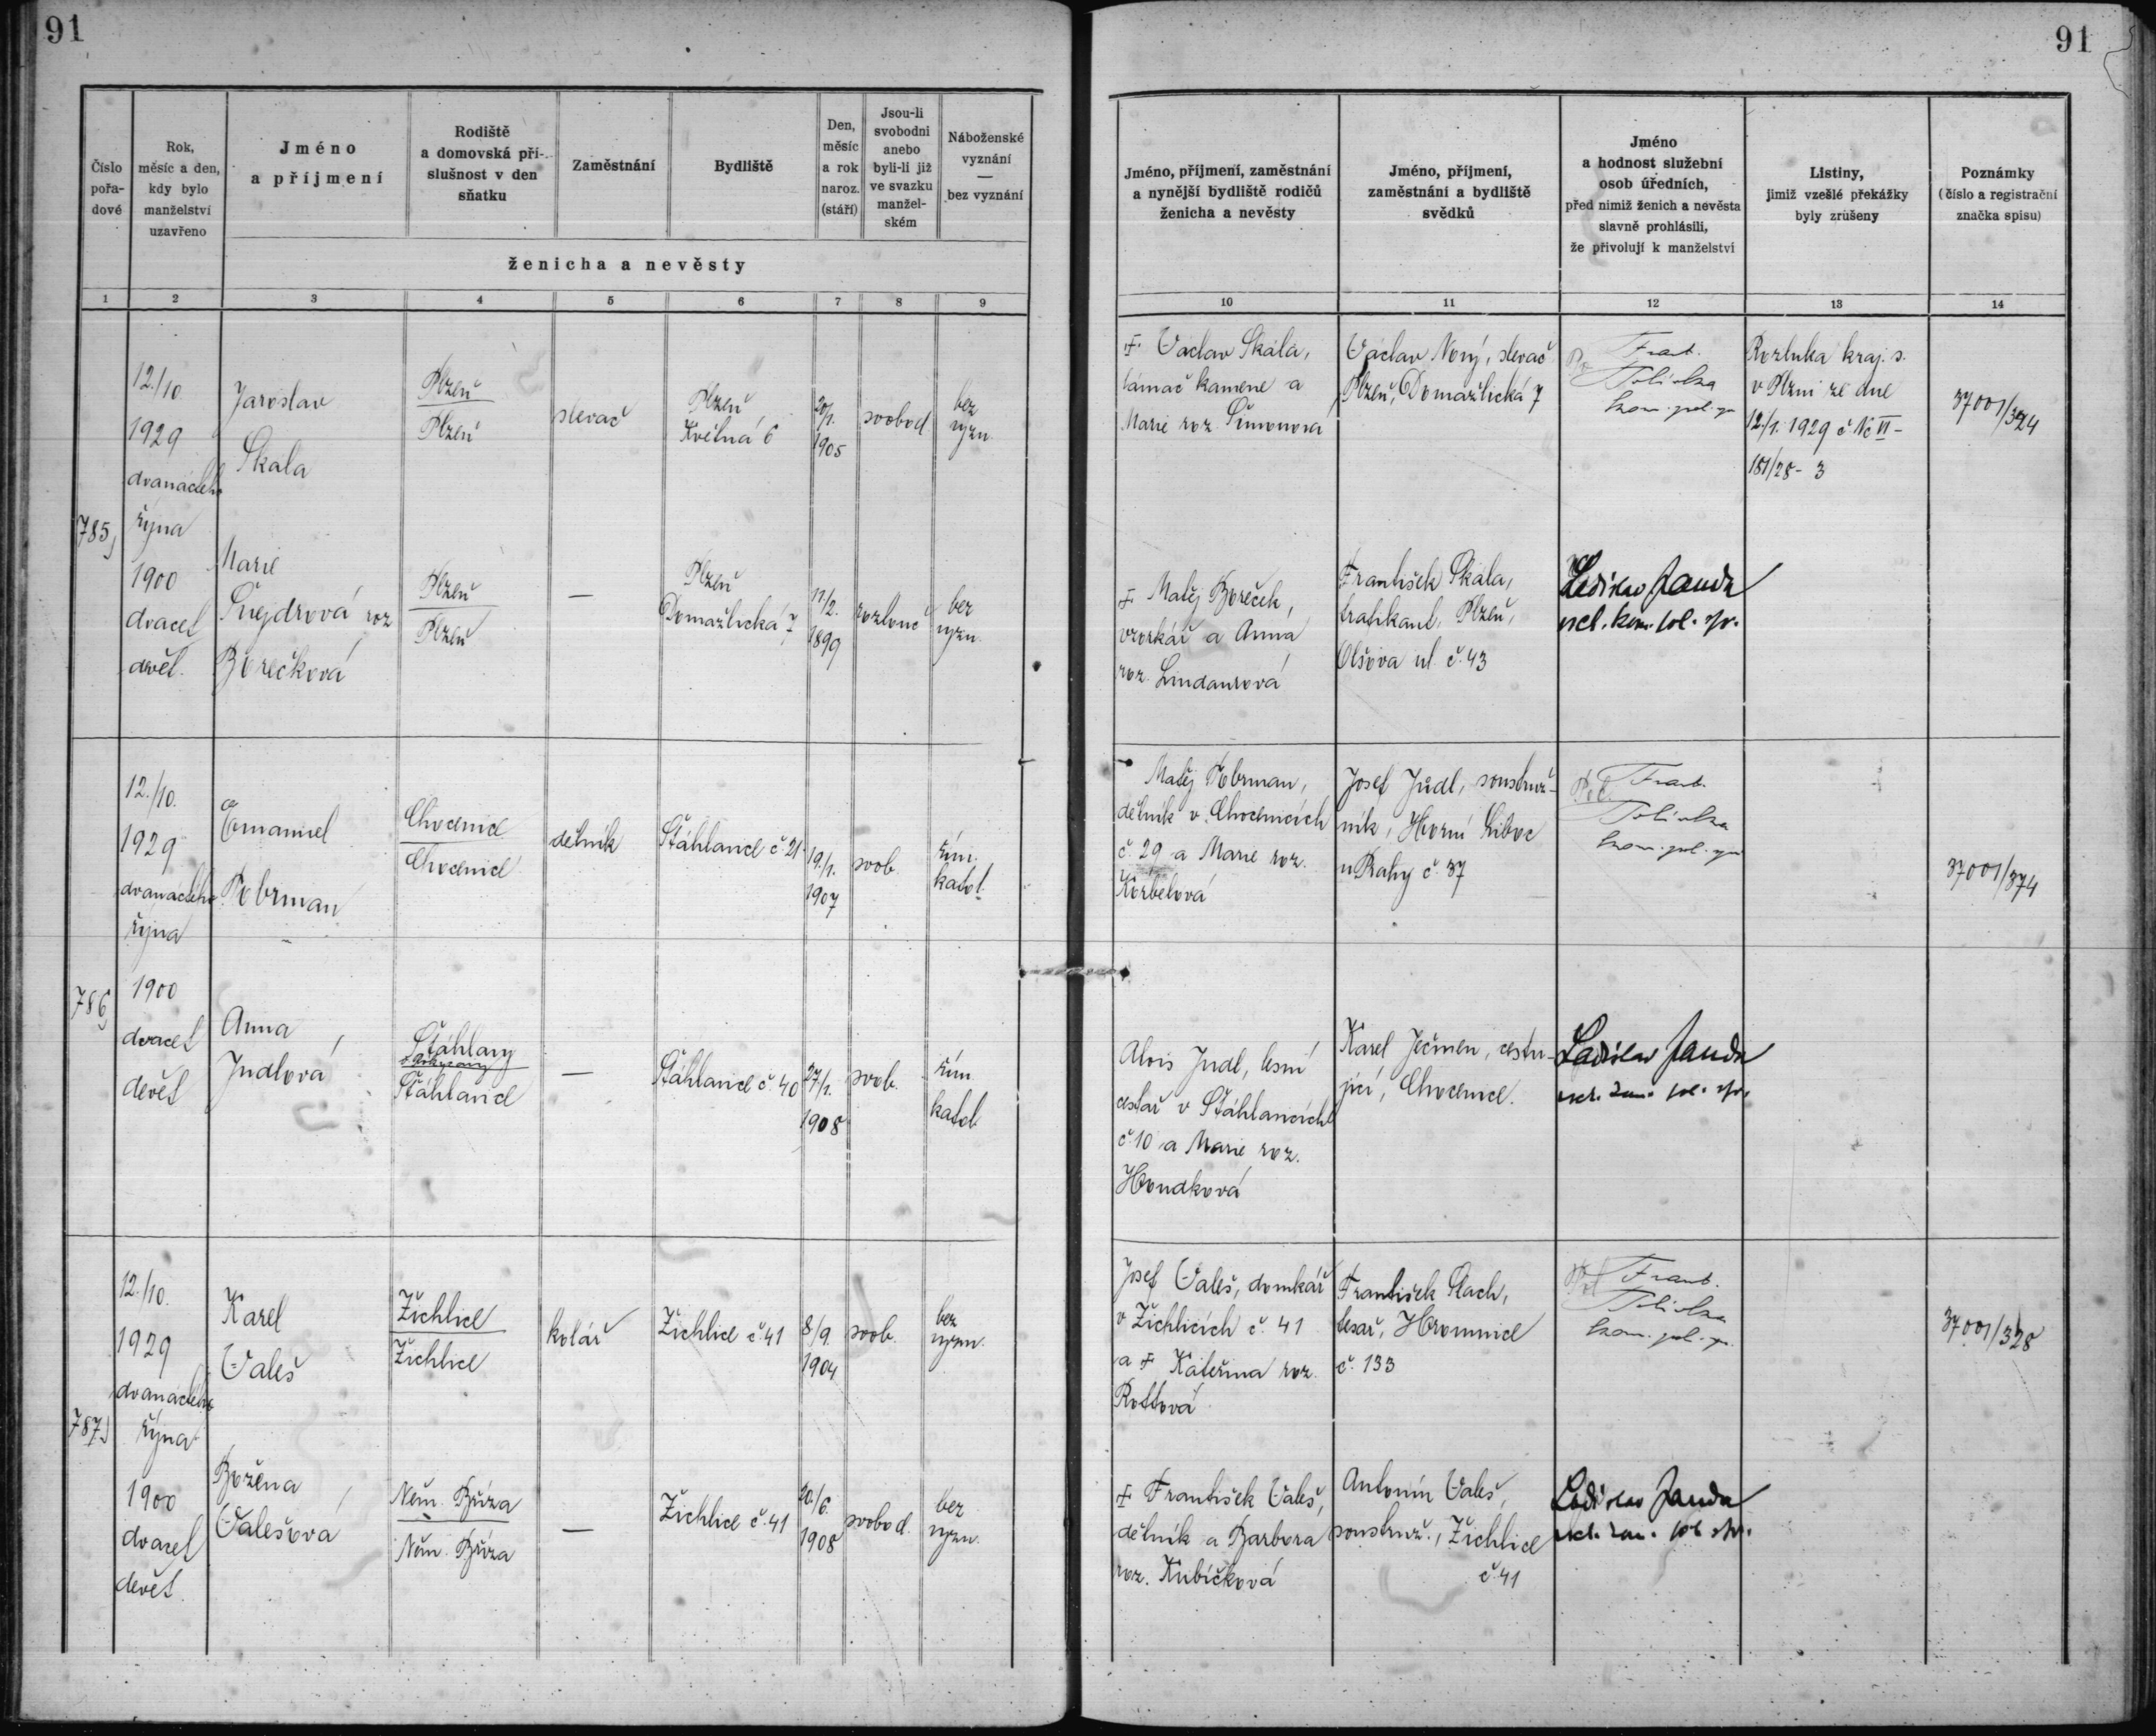 91
91
Číslo
pořa-
dové
Rok,
měsíc a den,
kdy bylo
manželství
uzavřeno
Jméno
a příjmení
Rodiště
a domovská pří-
slušnost v den
sňatku
Zaměstnání
Bydliště
Den,
měsíc
a rok
naroz.
(stáří)
Jsou-li
svobodni
anebo
byli-li již
ve svazku
manžel-
ském
Náboženské
vyznání
—
bez vyznání
ženicha a nevěsty
1 2 3 4 5 6 7 8 9
Jméno, příjmení, zaměstnání
a nynější bydliště rodičů
ženicha a nevěsty
Jméno, příjmení,
zaměstnání a bydliště
svědků
Jméno
a hodnost služební
osob úředních,
před nimiž ženich a nevěsta
slavně prohlásili,
že přivolují k manželství
Listiny,
jimiž vzešlé překážky
byly zrušeny
Poznámky
(číslo a registrační
značka spisu)
10 11 12 13 14
785)
12./10.
1929
dvanáctého
října
1900
dvacet
devět.
Jaroslav
Skala
Plzeň
Plzeň
slevač
Plzeň
Květná 6
20/1.
1905
svobod.
bez
vyzn.
† Václav Skála,
lámač kamene a
Marie roz. Šimonová
Václav Nový, slevač
Plzeň, Domažlická 7
Frant.
kom. pol. spr.
Rozluka kraj. s.
v Plzni ze dne
12./1. 1929 č. Nc VI-
181/28-3
37001/324
Marie
Šnejdrová roz
Borečková
Plzeň
Plzeň
—
Plzeň
Domažlická 7
11/2.
1899
rozlouč
bez
vyzn.
† Matěj Boreček,
vzorkář a Anna
roz. Lindaurová
František Skála,
trafikant, Plzeň,
Olšova ul. č. 43
Ladislav Janda
pol. spr.
786)
12./10.
1929
dvanáctého
října
1900
dvacet
devět
Emanuel
Pobrman
Chocenice
Chocenice
dělník
Šťáhlavice č. 21
19./1.
1907
svob.
řím.
katol.
Matěj Pobrman,
dělník v Chocenicích
č. 29 a Marie roz.
Korbelová
Josef Júdl, soustruž-
ník, Horní Liboc
u Prahy č. 37
Frant.
kom. pol. spr.
37001/374
Anna
Judlová
Šťáhlavy
Šťáhlavice
—
Šťáhlavice č. 40
27/1.
1908
svob.
řím.
katol.
Alois Judl, lesní
cestař v Šťáhlavicích
č. 10 a Marie roz.
Houdková
Karel Ječmen, cestu-
jící, Chocenice.
Ladislav Janda
pol. spr.
787)
12./10.
1929
dvanáctého
října
1900
dvacet
devět.
Karel
Valeš
Žichlice
Žichlice
kolář
Žichlice č. 41
8/9.
1904
svob.
bez
vyzn.
Josef Valeš, domkář
v Žichlicích č. 41
a † Kateřina roz.
Rottová
František Plach,
tesař, Hromnice
č. 133
Frant.
kom. pol. spr.
37001/328
Božena
Valešová
Něm. Bříza
Něm. Bříza
—
Žichlice č. 41
20./6.
1908
svobod.
bez
vyzn.
† František Valeš,
dělník a Barbora
roz. Kubíčková
Antonín Valeš,
soustruž., Žichlice
č. 41
Ladislav Janda
pol. spr.